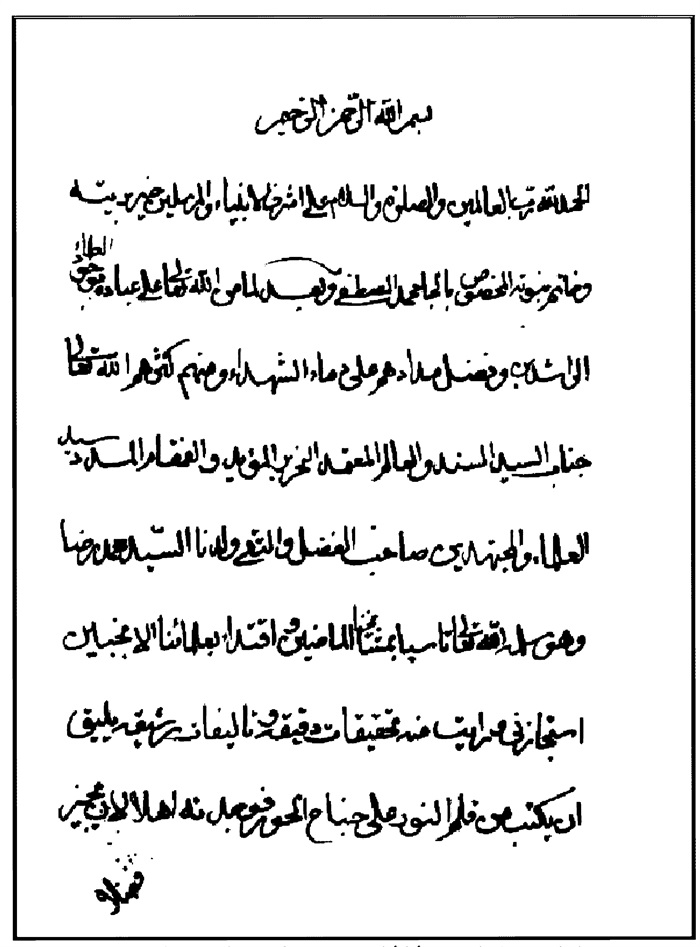 بسم الله الرحمن الرحيم
الحمد لله رب العالمين والصلوة والسلام على اشرف الانبياء والمرسلين خير بريته
وخاتم نبوته المخصوص محمد المصطفى وبعد لما من الله تعالى على عباده
الراشدين وفضل مدادهم على دماء الشهداء ومنهم كثرهم الله تعالى
جناب السيد المسند والعالم المعتمد النحرير المؤيد والفقيه المسدد سيد
العلماء والمجتهدين صاحب الفضل والتقى ولدنا السيد محمد رضا
وهو سلمه الله تعالى تاسيا بمشايخنا الماضين و اقتداء بعلمائنا الانجبين
استجازني ورايت منه تحقيقات دقيقة وتاليفات رشيقة يليق
ان يكتب من قلم النور على جناح الحور فوجدته اهلا لان يجيز